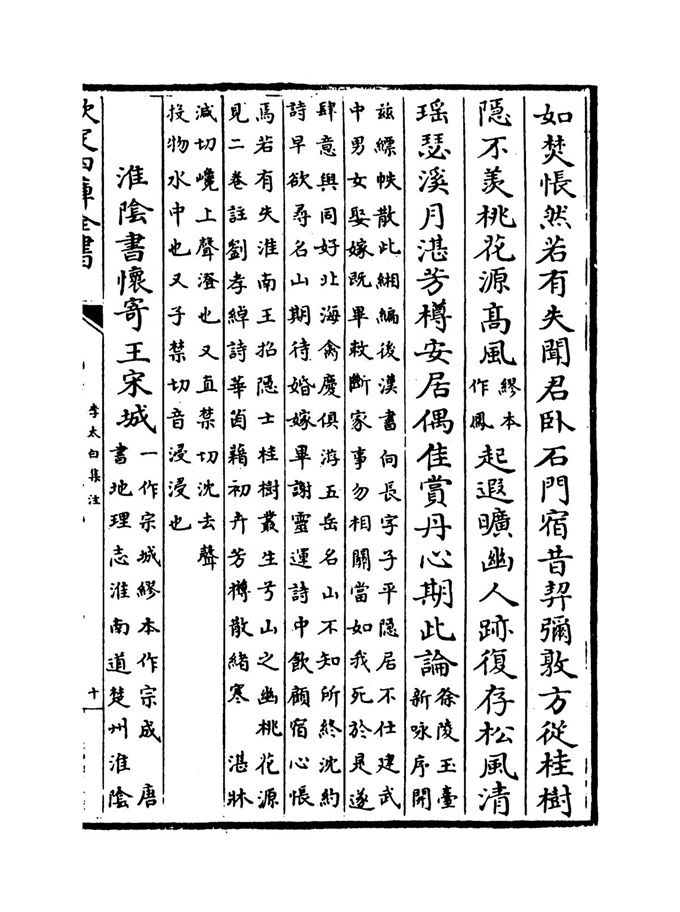 如焚悵然若有失聞君卧石門宿昔契彌敦方從桂樹
隠不羡桃花源髙風繆本作鳳起遐曠幽人跡復存松風清
瑶瑟溪月湛芳樽安居偶佳賞丹心期此論徐陵玉臺新咏序開
兹縹帙散此緗編後漢書向長字子平隠居不仕建武
中男女娶嫁既畢敕斷家事勿相關當如我死於是遂
肆意與同好北海禽慶俱游五岳名山不知所終沈約
詩早欲尋名山期待婚嫁畢謝靈運詩中飲顧宿心悵
馬若有失淮南王招隠士桂樹叢生兮山之幽桃花源
見二卷註劉孝綽詩華茵藉初卉芳樽散緒寒 湛牀
減切巉上聲澄也又直禁切沈去聲
投物水中也又子禁切音浸浸也
淮隂書懐寄王宋城一作宗城繆本作宗成 唐
書地理志淮南道楚州淮隂
欽定四庫全書
李太白集注
十